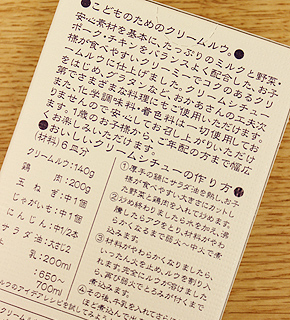 ●こどものためのクリームルウ。●
安心素材を基本に、たっぷりのミルクと野菜、
ポーク・チキンをバランスよく配合した、お子
様が食べやすいクリーミーでコクのあるクリ
ームルウに仕上げました。クリームシチュー
をはじめ、グラタンなど、おかあさんの工夫次
第でさまざまな料理にもご使用いただけます。
また、化学調味料・着色料は一切使用してお
りませんので安心してお召し上がりいただけ
ます。1歳のお子様から、ご年配の方まで幅広
くお楽しみいただけます。
●おいしいクリームシチューの作り方●
(材料)6皿分
クリームルウ:140g
鶏肉:200g
玉ねぎ:中1個
じゃがいも:中1個
にんじん:1/2本
サラダ油:大さじ2
乳:200ml
:650〜
700ml
①厚手の鍋にサラダ油を熱し、お子
様が食べやすい大きさにカットし
た野菜と鶏肉を入れて炒めます。
②材料が炒まったら水を加え、沸
騰したらアクをとり、材料がやわ
らかくなるまで弱火〜中火で煮
込みます。
③材料がやわらかくなりましたら、
いったん火を止め、ルウを割り入
れます。完全にルウが溶けました
ら、再び弱火でとろみが付くまで
煮込みます。
④その後、牛乳を入れてさらに
ほど煮込んで出
ルウのアイデアレシピを試してみま
クリームラ